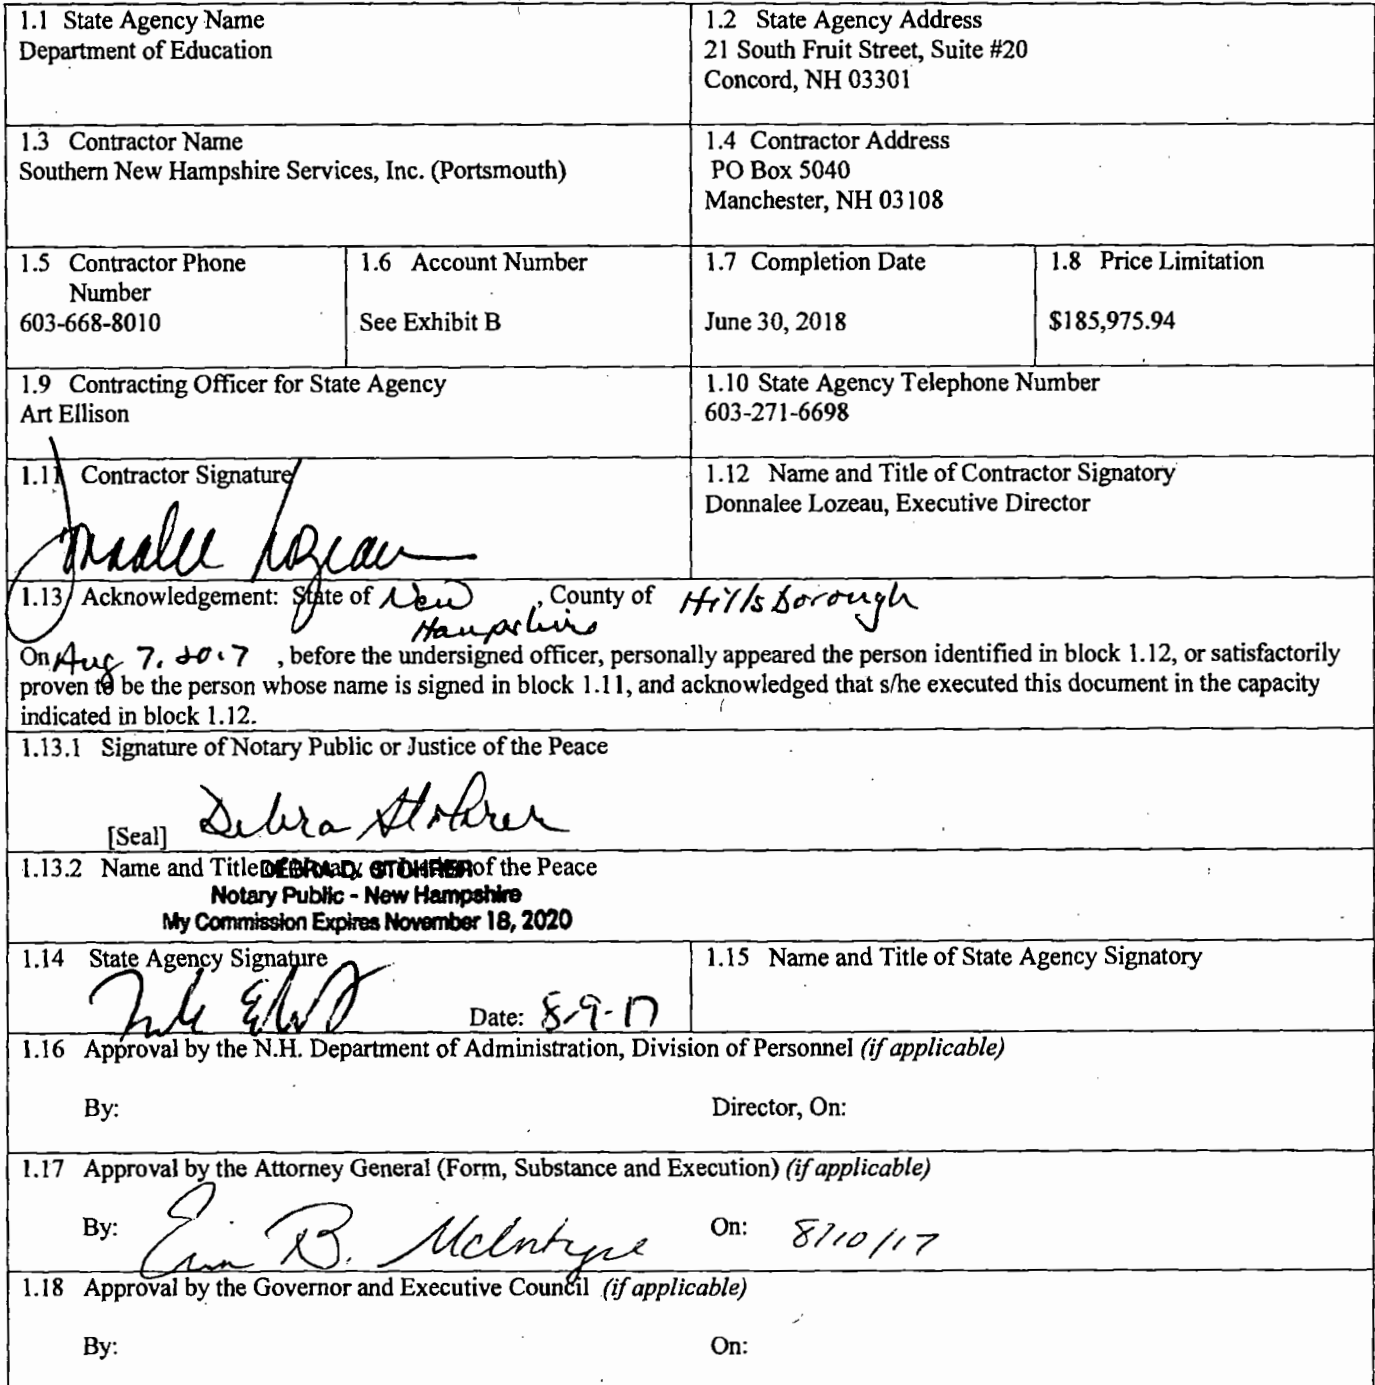 1.1 State Agency Name
Department of Education
1.2 State Agency Address
21 South Fruit Street, Suite #20
Concord, NH 03301
1.3 Contractor Name
Southern New Hampshire Services, Inc. (Portsmouth)
1.4 Contractor Address
PO Box 5040
Manchester, NH 03108
1.5 Contractor Phone
Number
603-668-8010
1.6 Account Number
See Exhibit B
1.7 Completion Date
June 30, 2018
1.8 Price Limitation
$185,975.94
1.9 Contracting Officer for State Agency
Art Ellison
1.10 State Agency Telephone Number
603-271-6698
1.11 Contractor Signature
Donnalee Lozeau
1.12 Name and Title of Contractor Signatory
Donnalee Lozeau, Executive Director
1.13 Acknowledgement: State of New Hampshire, County of Hillsborough
On Aug 7, 2017, before the undersigned officer, personally appeared the person identified in block 1.12, or satisfactorily
proven to be the person whose name is signed in block 1.11, and acknowledged that s/he executed this document in the capacity
indicated in block 1.12.
1.13.1 Signature of Notary Public or Justice of the Peace
[Seal] Debra Stohrer
1.13.2 Name and Title of the Peace
DEBRA D. STOHRER
Notary Public - New Hampshire
My Commission Expires November 18, 2020
1.14 State Agency Signature
Date: 8-9-17
1.15 Name and Title of State Agency Signatory
1.16 Approval by the N.H. Department of Administration, Division of Personnel (if applicable)
By: Director, On:
1.17 Approval by the Attorney General (Form, Substance and Execution) (if applicable)
By: Erin B. McIntyre On: 8/10/17
1.18 Approval by the Governor and Executive Council (if applicable)
By: On: